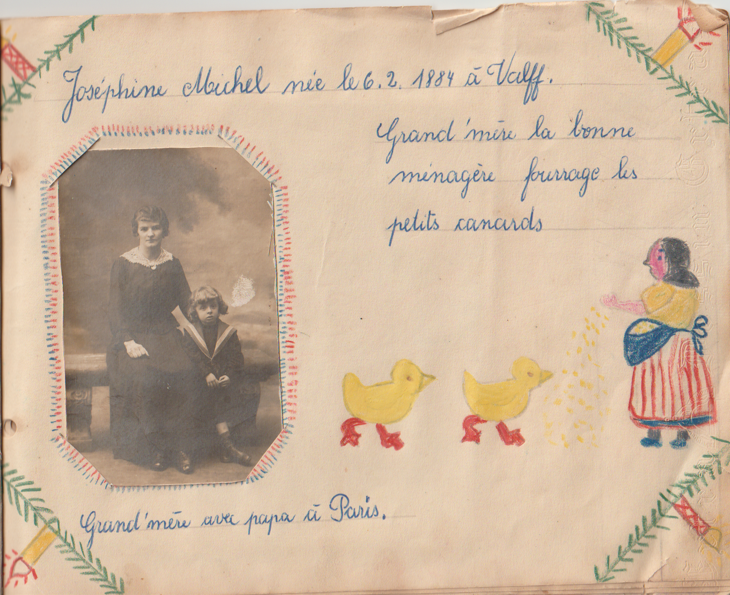 Joséphine Michel née le 6. 2. 1884 à Valff.
Grand'mère la bonne
ménagère fourrage les
petits canards
Grand'mère avec papa à Paris.